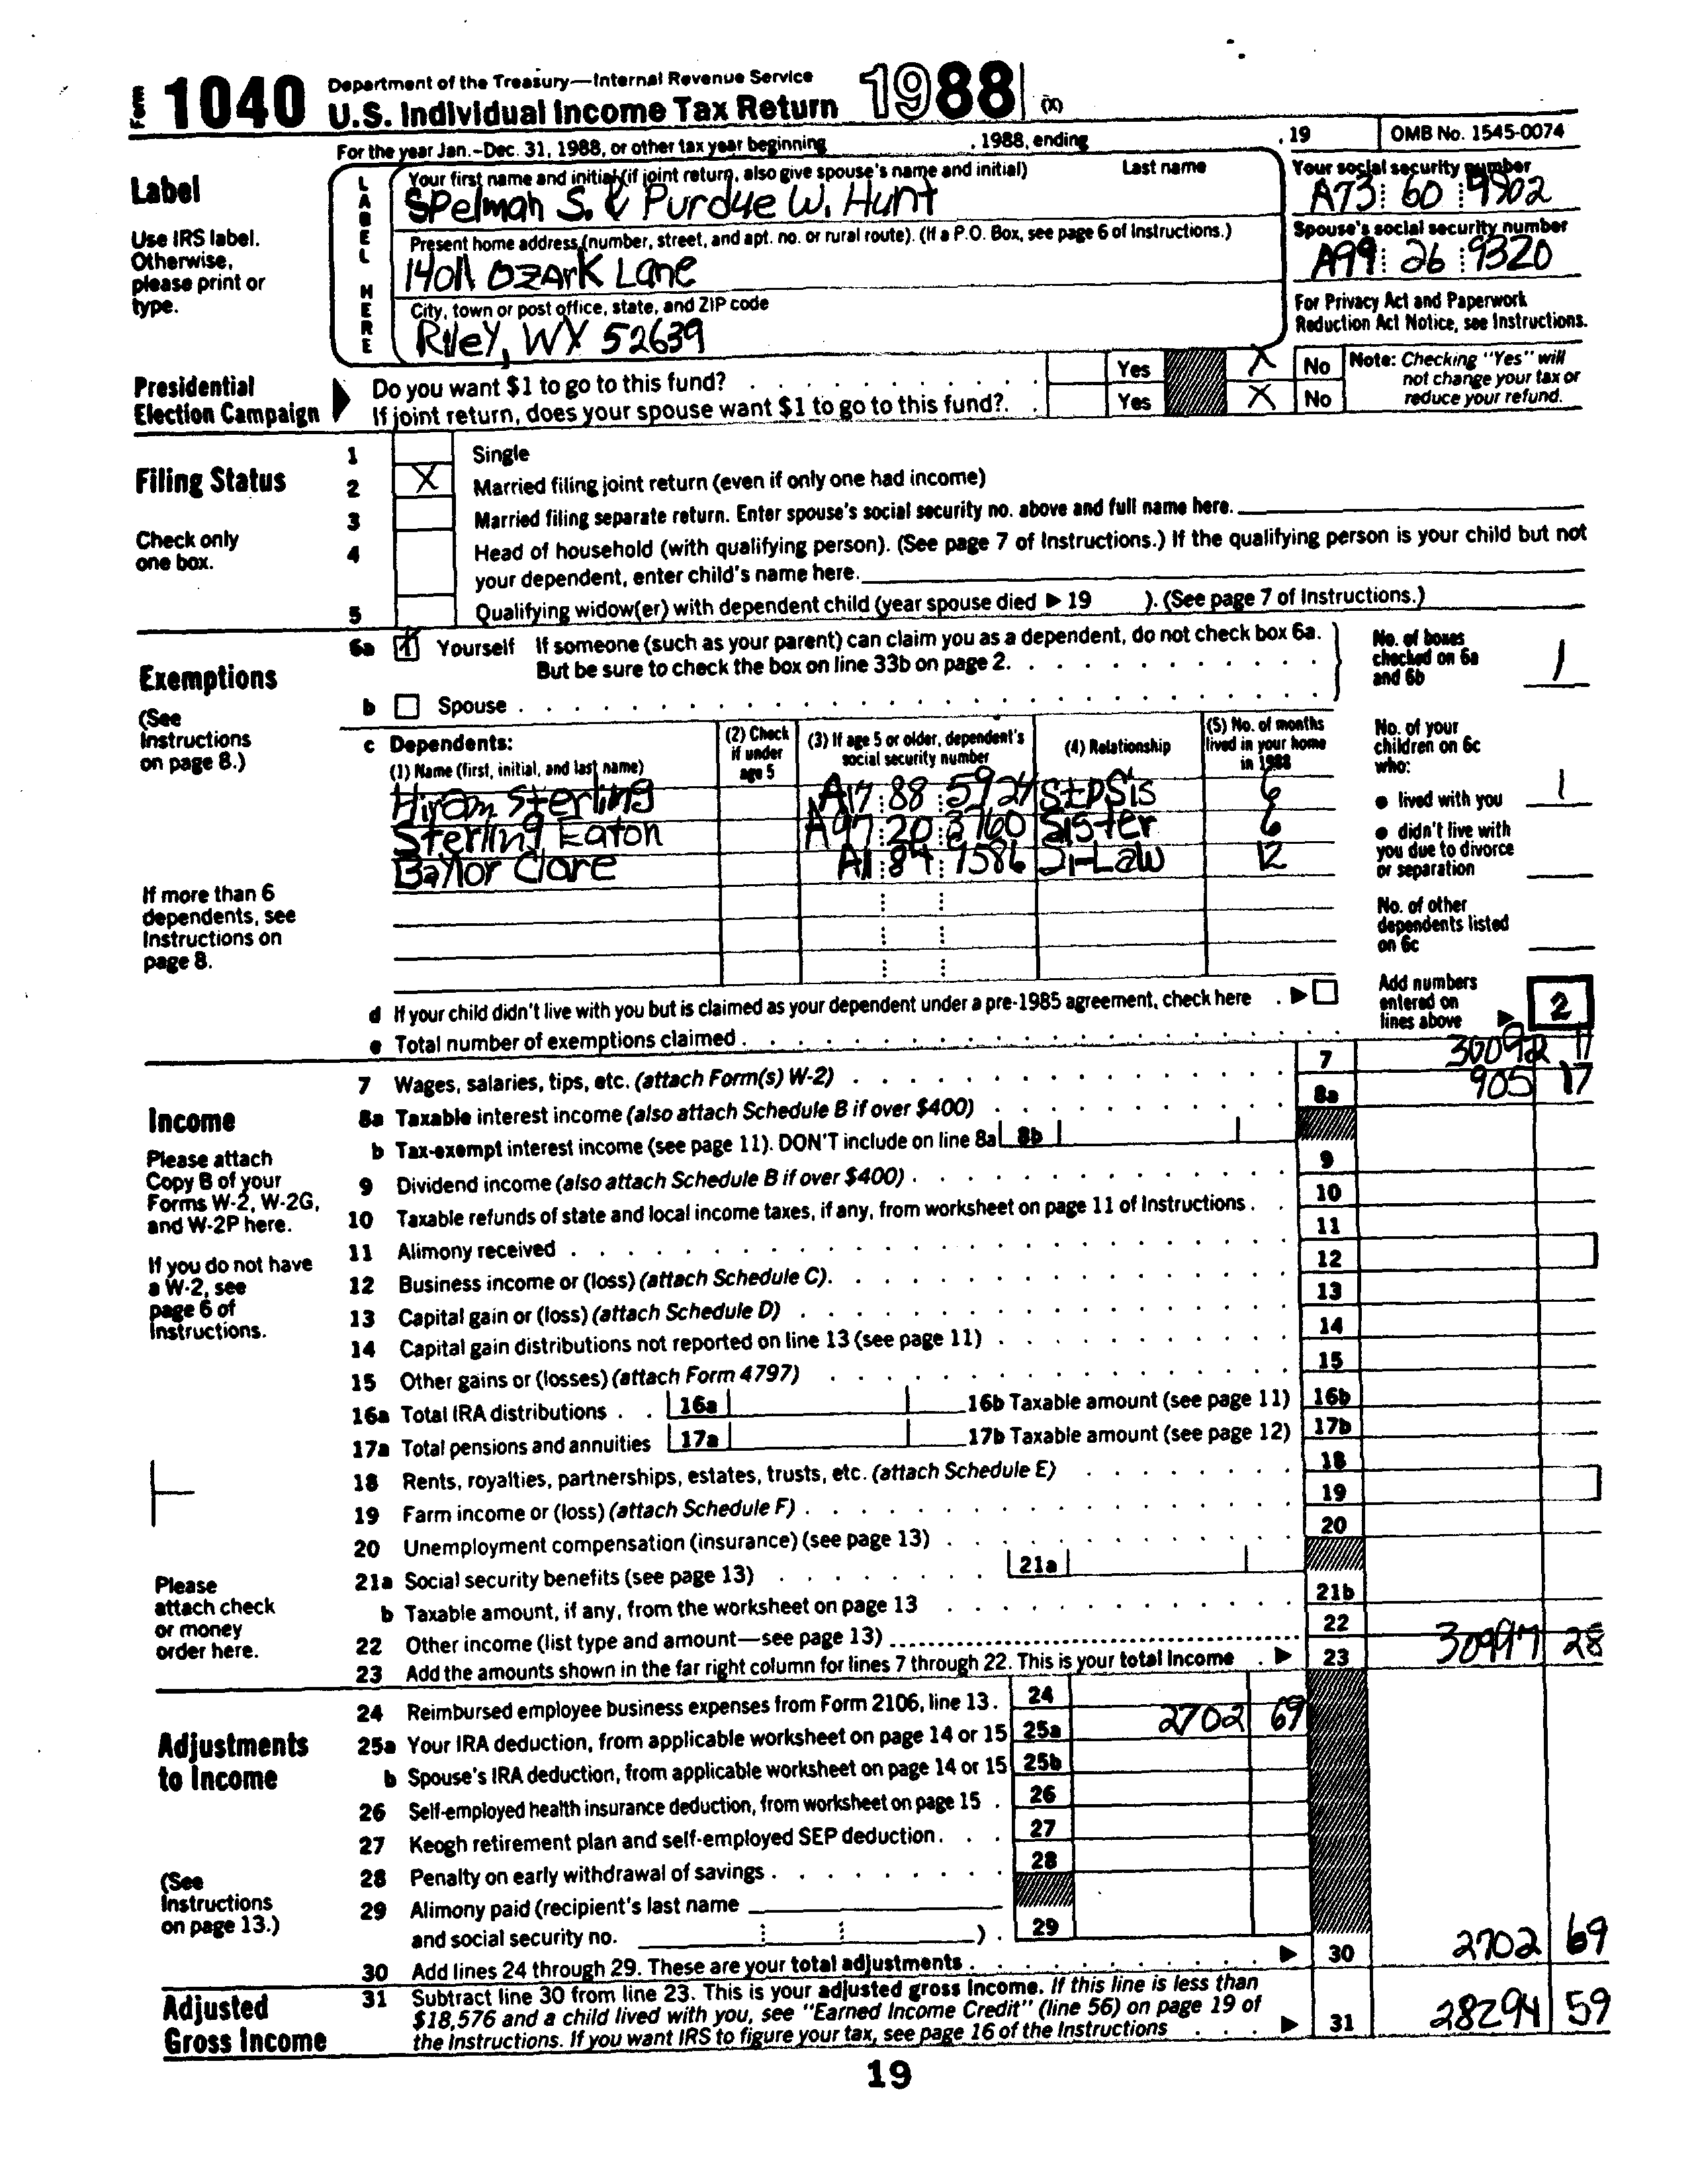 Form 1040 Department of the Treasury—Internal Revenue Service
U.S. Individual Income Tax Return 1988 (X)
For the year Jan.–Dec. 31, 1988, or other tax year beginning , 1988, ending , 19 OMB No. 1545-0074
Label
Use IRS label.
Otherwise,
please print or
type.
LABEL HERE
Your first name and initial (if joint return, also give spouse's name and initial) Last name
Spelman S. & Purdue W. Hunt
Your social security number
A73 60 9802
Present home address (number, street, and apt. no. or rural route). (If a P.O. Box, see page 6 of Instructions.)
14011 Ozark Lane
Spouse's social security number
A99 26 9320
City, town or post office, state, and ZIP code
Riley, WY 52639
For Privacy Act and Paperwork
Reduction Act Notice, see Instructions.
Presidential
Election Campaign
Do you want $1 to go to this fund? Yes X No
If joint return, does your spouse want $1 to go to this fund? Yes X No
Note: Checking "Yes" will
not change your tax or
reduce your refund.
Filing Status
Check only
one box.
1 Single
2 X Married filing joint return (even if only one had income)
3 Married filing separate return. Enter spouse's social security no. above and full name here.
4 Head of household (with qualifying person). (See page 7 of Instructions.) If the qualifying person is your child but not
your dependent, enter child's name here.
5 Qualifying widow(er) with dependent child (year spouse died ▶ 19 ). (See page 7 of Instructions.)
Exemptions
(See
Instructions
on page 8.)
6a Yourself If someone (such as your parent) can claim you as a dependent, do not check box 6a.
But be sure to check the box on line 33b on page 2.
b Spouse
No. of boxes
checked on 6a
and 6b 1
c Dependents:
(1) Name (first, initial, and last name)
(2) Check
if under
age 5
(3) If age 5 or older, dependent's
social security number
(4) Relationship
(5) No. of months
lived in your home
in 1988
Hiram Sterling A17 88 5924 StpSis 6
Sterling Eaton A97 20 3760 Sister 6
Baylor Clare 9586 12
If more than 6
dependents, see
Instructions on
page 8.
No. of your
children on 6c
who:
● lived with you 1
● didn't live with
you due to divorce
or separation
No. of other
dependents listed
on 6c
d If your child didn't live with you but is claimed as your dependent under a pre-1985 agreement, check here ▶
e Total number of exemptions claimed
Add numbers
entered on
lines above ▶ 2
Income
Please attach
Copy B of your
Forms W-2, W-2G,
and W-2P here.
If you do not have
a W-2, see
page 6 of
Instructions.
Please
attach check
or money
order here.
7 Wages, salaries, tips, etc. (attach Form(s) W-2) 7 30092 11
8a Taxable interest income (also attach Schedule B if over $400) 8a 905 17
b Tax-exempt interest income (see page 11). DON'T include on line 8a 8b
9 Dividend income (also attach Schedule B if over $400) 9
10 Taxable refunds of state and local income taxes, if any, from worksheet on page 11 of Instructions 10
11 Alimony received 11
12 Business income or (loss) (attach Schedule C) 12
13 Capital gain or (loss) (attach Schedule D) 13
14 Capital gain distributions not reported on line 13 (see page 11) 14
15 Other gains or (losses) (attach Form 4797) 15
16a Total IRA distributions 16a 16b Taxable amount (see page 11) 16b
17a Total pensions and annuities 17a 17b Taxable amount (see page 12) 17b
18 Rents, royalties, partnerships, estates, trusts, etc. (attach Schedule E) 18
19 Farm income or (loss) (attach Schedule F) 19
20 Unemployment compensation (insurance) (see page 13) 20
21a Social security benefits (see page 13) 21a
b Taxable amount, if any, from the worksheet on page 13 21b
22 Other income (list type and amount—see page 13) 22
23 Add the amounts shown in the far right column for lines 7 through 22. This is your total income ▶ 23 30997 28
Adjustments
to Income
(See
Instructions
on page 13.)
24 Reimbursed employee business expenses from Form 2106, line 13. 24
25a Your IRA deduction, from applicable worksheet on page 14 or 15 25a 2702 69
b Spouse's IRA deduction, from applicable worksheet on page 14 or 15 25b
26 Self-employed health insurance deduction, from worksheet on page 15 26
27 Keogh retirement plan and self-employed SEP deduction 27
28 Penalty on early withdrawal of savings 28
29 Alimony paid (recipient's last name
and social security no. ) 29
30 Add lines 24 through 29. These are your total adjustments ▶ 30 2702 69
Adjusted
Gross Income
31 Subtract line 30 from line 23. This is your adjusted gross income. If this line is less than
$18,576 and a child lived with you, see "Earned Income Credit" (line 56) on page 19 of
the Instructions. If you want IRS to figure your tax, see page 16 of the Instructions ▶ 31 28294 59
19